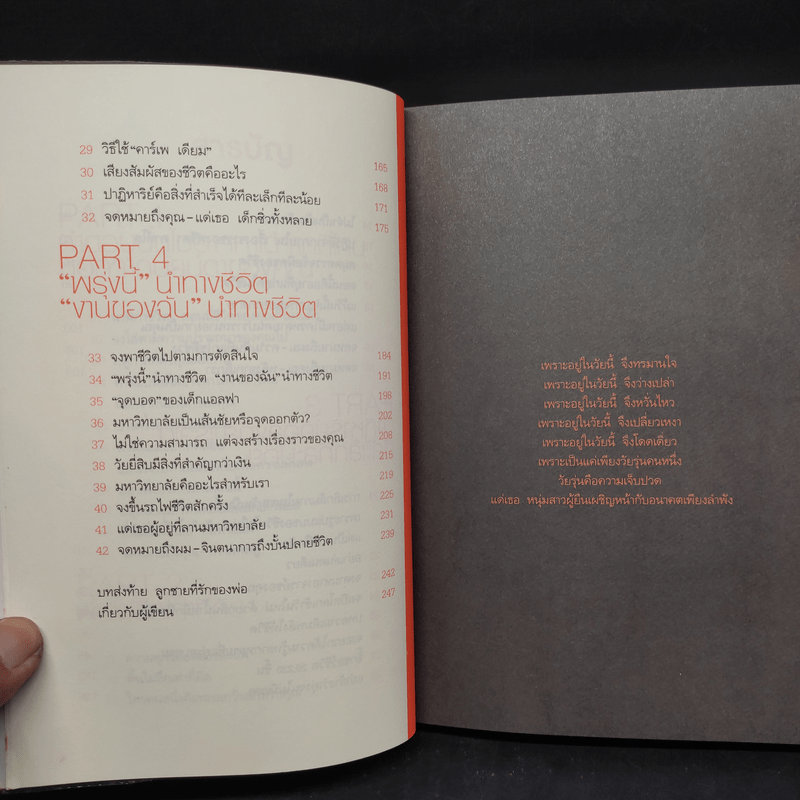 29 วิธีใช้ “คาร์เพ เดียม” 165
30 เสียงสัมผัสของชีวิตคืออะไร 168
31 ปาฏิหาริย์คือสิ่งที่สำเร็จได้ทีละเล็กทีละน้อย 171
32 จดหมายถึงคุณ-แด่เธอ เด็กซิ่วทั้งหลาย 175
PART 4
“พรุ่งนี้” นำทางชีวิต
“งานของฉัน” นำทางชีวิต
33 จงพาชีวิตไปตามการตัดสินใจ 184
34 “พรุ่งนี้” นำทางชีวิต “งานของฉัน” นำทางชีวิต 191
35 “จุดบอด” ของเด็กแอลฟา 198
36 มหาวิทยาลัยเป็นเส้นชัยหรือจุดออกตัว? 202
37 ไม่ใช่ความสามารถ แต่จงสร้างเรื่องราวของคุณ 208
38 วัยยี่สิบมีสิ่งที่สำคัญกว่าเงิน 215
39 มหาวิทยาลัยคืออะไรสำหรับเรา 219
40 จงขึ้นรถไฟชีวิตสักครั้ง 225
41 แด่เธอผู้อยู่ที่ลานมหาวิทยาลัย 231
42 จดหมายถึงผม-จินตนาการถึงบั้นปลายชีวิต 239
บทส่งท้าย ลูกชายที่รักของพ่อ 242
เกี่ยวกับผู้เขียน 247
เพราะอยู่ในวัยนี้ จึงทรมานใจ
เพราะอยู่ในวัยนี้ จึงว่างเปล่า
เพราะอยู่ในวัยนี้ จึงหวั่นไหว
เพราะอยู่ในวัยนี้ จึงเปลี่ยวเหงา
เพราะอยู่ในวัยนี้ จึงโดดเดี่ยว
เพราะเป็นแค่เพียงวัยรุ่นคนหนึ่ง
วัยรุ่นคือความเจ็บปวด
แด่เธอ หนุ่มสาวผู้ยืนเผชิญหน้ากับอนาคตเพียงลำพัง